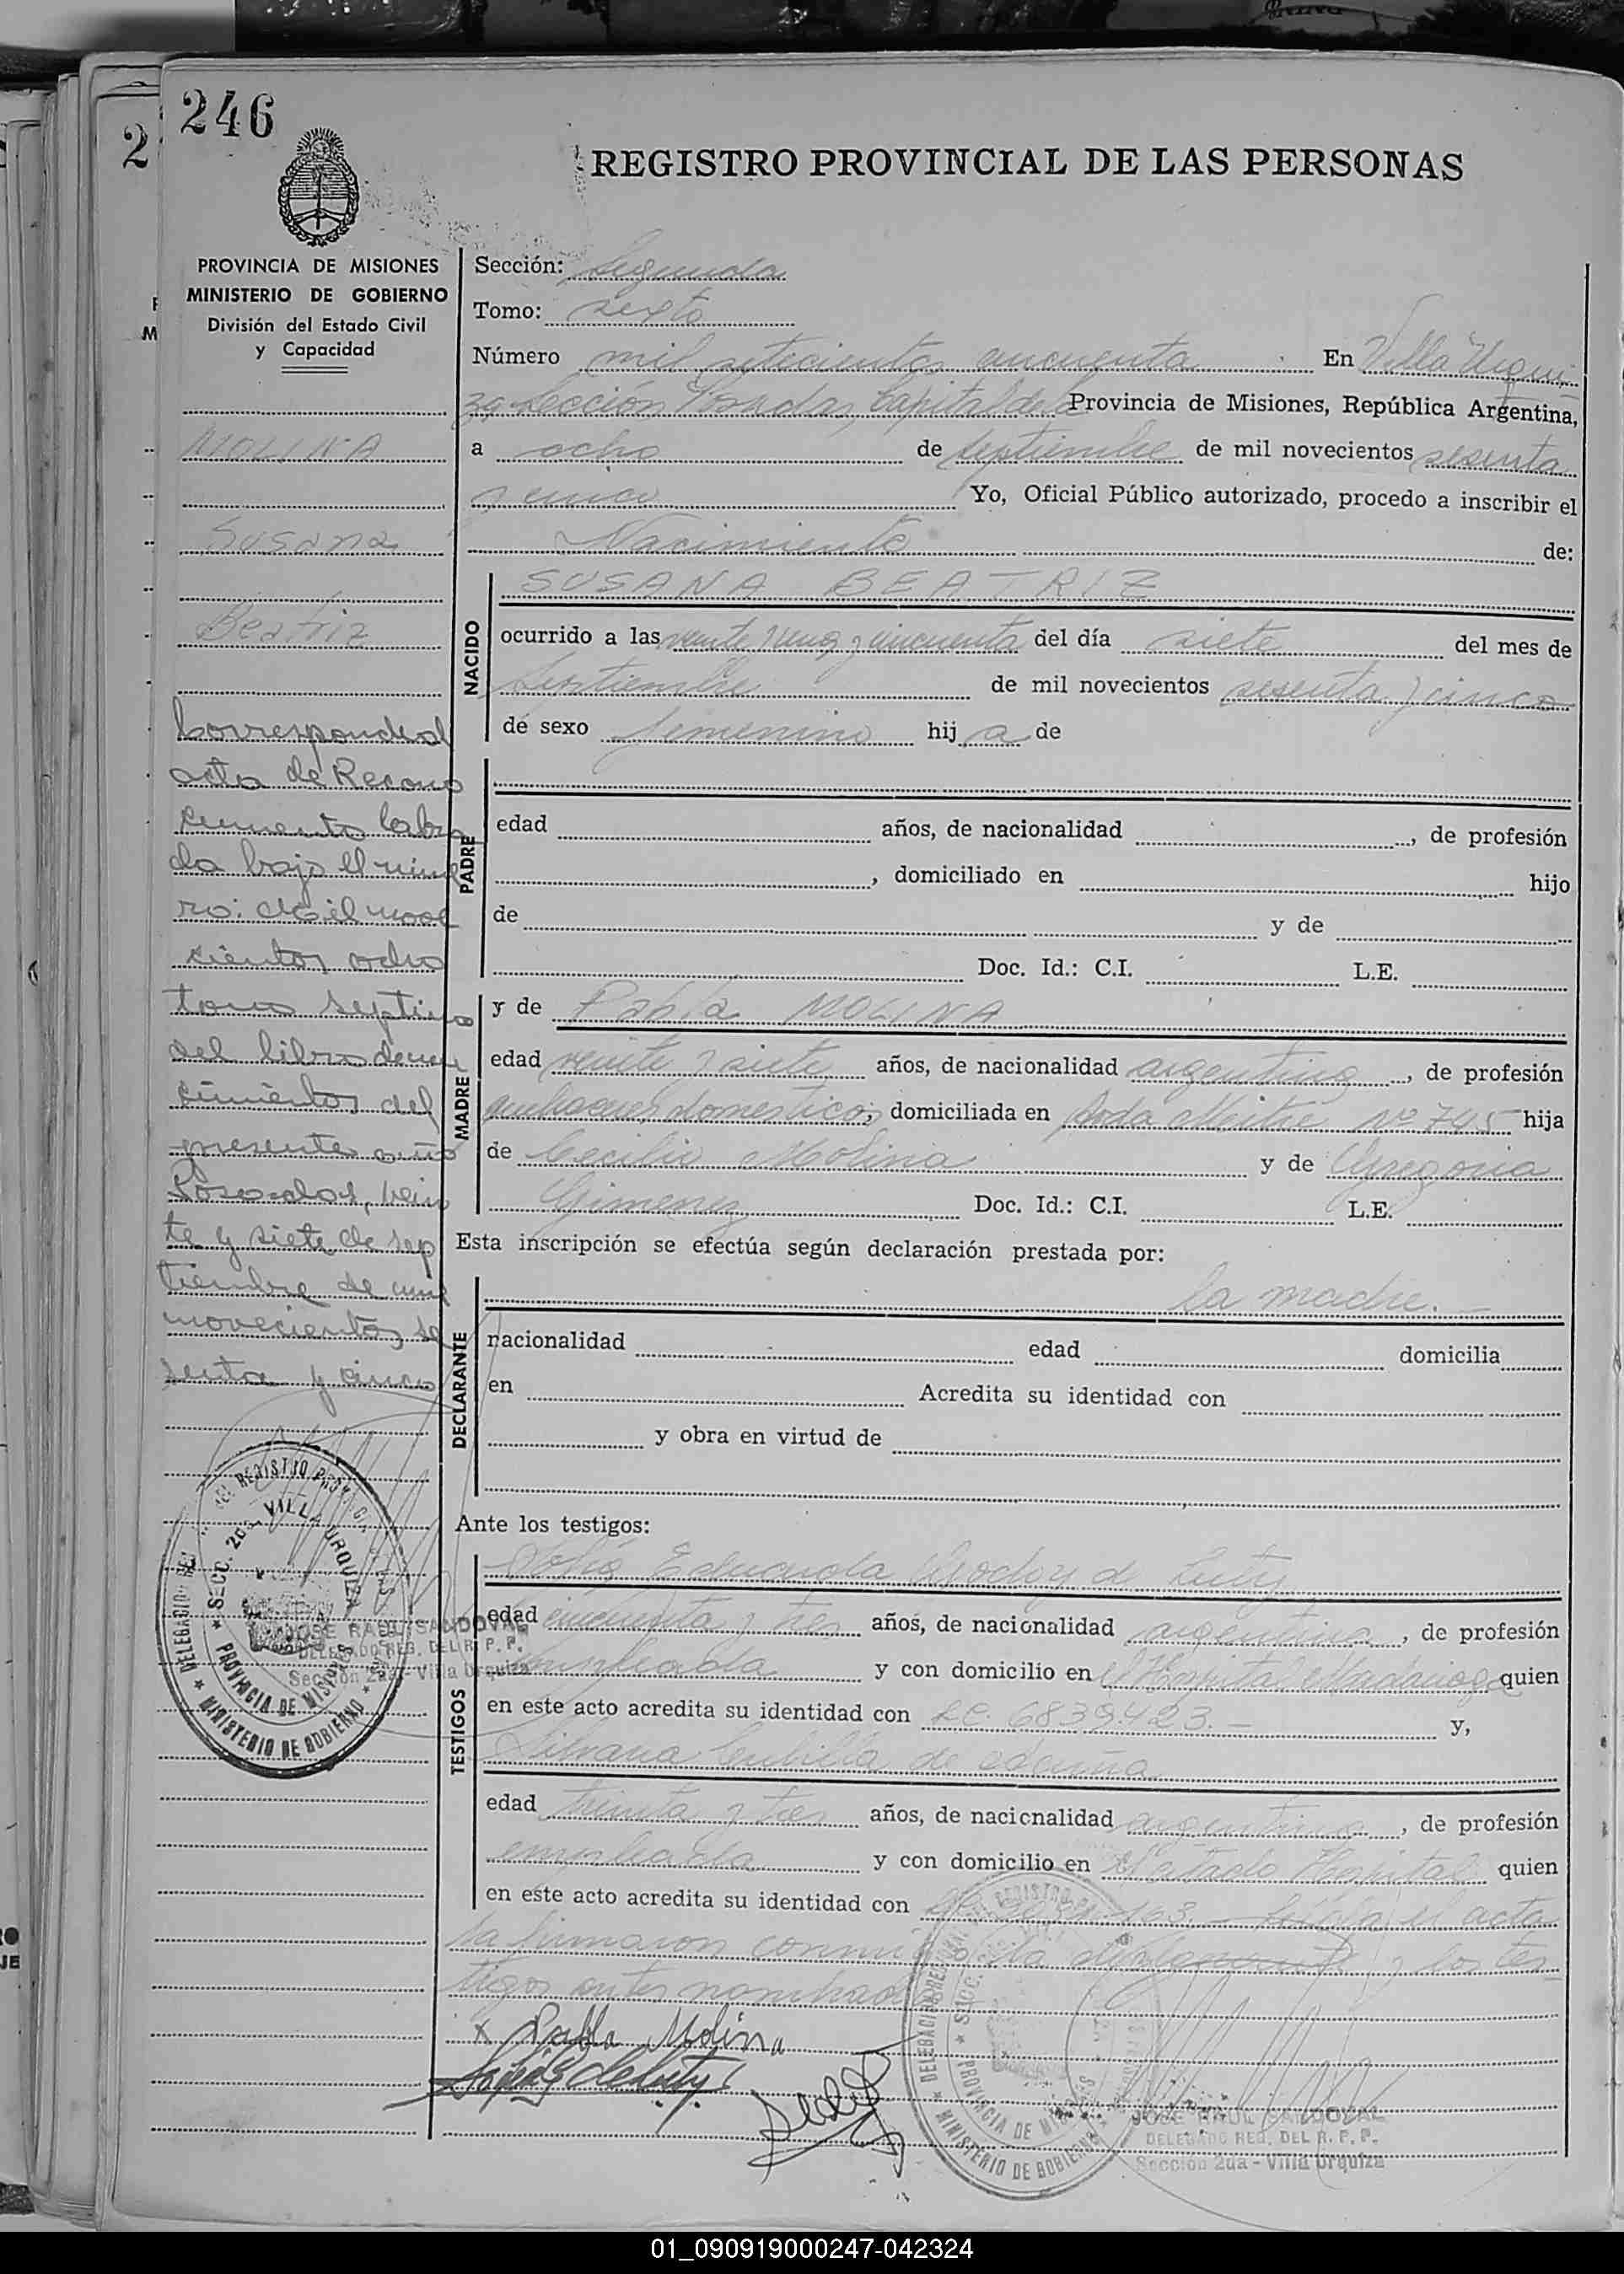 246
2
REGISTRO PROVINCIAL DE LAS PERSONAS
PROVINCIA DE MISIONES
MINISTERIO DE GOBIERNO
División del Estado Civil
y Capacidad
MOLINA
Susana
Beatriz
Corresponde al
acta de Recono
cimiento labra
da bajo el núme
ro:
cientos ocho
tomo septimo
del libro de naci
mientos del
presente año
Posadas, vein
te y siete de sep
tiembre de mil
novecientos se
senta y cinco
Sección: Segunda
Tomo: sexto
Número mil setecientos cincuenta En Villa Urqui-
za Sección Posadas, Capital de la Provincia de Misiones, República Argentina,
a ocho de septiembre de mil novecientos sesenta
y cinco Yo, Oficial Público autorizado, procedo a inscribir el
Nacimiento de:
NACIDO
SUSANA BEATRIZ
ocurrido a las veinte y una y cincuenta del día siete del mes de
Septiembre de mil novecientos sesenta y cinco
de sexo femenino hij a de
PADRE
edad años, de nacionalidad , de profesión
, domiciliado en hijo
de y de
Doc. Id.: C.I. L.E.
MADRE
y de Pabla MOLINA
edad veinte y siete años, de nacionalidad argentina, de profesión
quehaceres domesticos, domiciliada en Avda Mitre Nº 745 hija
de Cecilio Molina y de Gregoria
Gimenez Doc. Id.: C.I. L.E.
Esta inscripción se efectúa según declaración prestada por:
DECLARANTE
la madre.-
nacionalidad edad domicilia
en Acredita su identidad con
y obra en virtud de
Ante los testigos:
TESTIGOS
Godoy de Luty
edad cincuenta y tres años, de nacionalidad argentina, de profesión
empleada y con domicilio en el Hospital Madariaga quien
en este acto acredita su identidad con LC. 6839.423.- y,
Silvana de
edad treinta y tres años, de nacionalidad argentina, de profesión
empleada y con domicilio en el citado Hospital quien
en este acto acredita su identidad con 163.- Leída el acta
la firmaron conmigo la y los tes-
tigos antes nombrados
x Pabla Molina
DELEGACION REG. DEL REGISTRO PROV.
SECC. 2da. VILLA URQUIZA
PROVINCIA DE MISIONES
MINISTERIO DE GOBIERNO
JOSE RAUL SANDOVAL
DELEGADO REG. DEL R. P. P.
Sección 2da - Villa Urquiza
JOSE RAUL SANDOVAL
DELEGADO REG. DEL R. P. P.
Sección 2da - Villa Urquiza
01_090919000247-042324